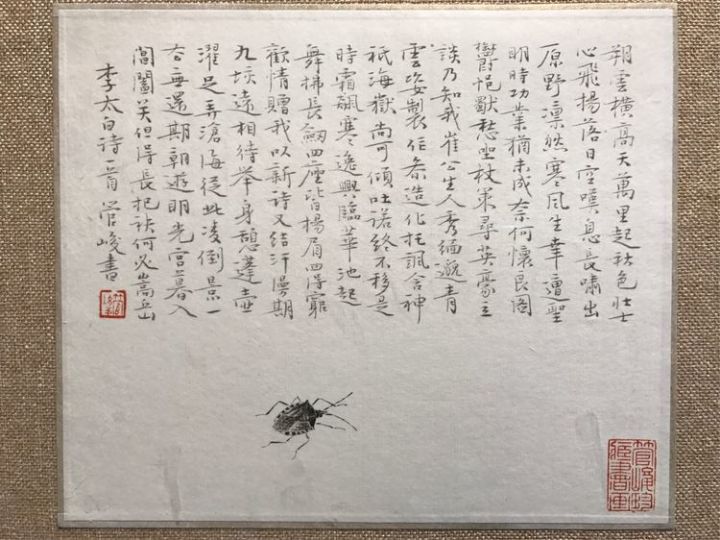 朔雲橫高天萬里起秋色壮士
心飛揚落日空嘆息長嘯出
原野凛然寒風生幸遭聖
明時功業猶未成奈何懷良圖
鬱悒獨愁坐杖策尋英豪立
談乃知我崔公生人秀緬邈青
雲姿製作參造化托諷含神
祇海嶽尚可傾吐諾終不移是
時霜飆寒逸興臨華池起
舞拂長劒四座皆揚眉因得窮
歡情贈我以新诗又結汗漫期
九垓遠相待举身憩蓬壺
濯足弄滄海從此凌倒景一
去無還期朝遊明光宫暮入
閶闔关但得長把袂何必嵩岳山
李太白诗一首管峻書
管峻